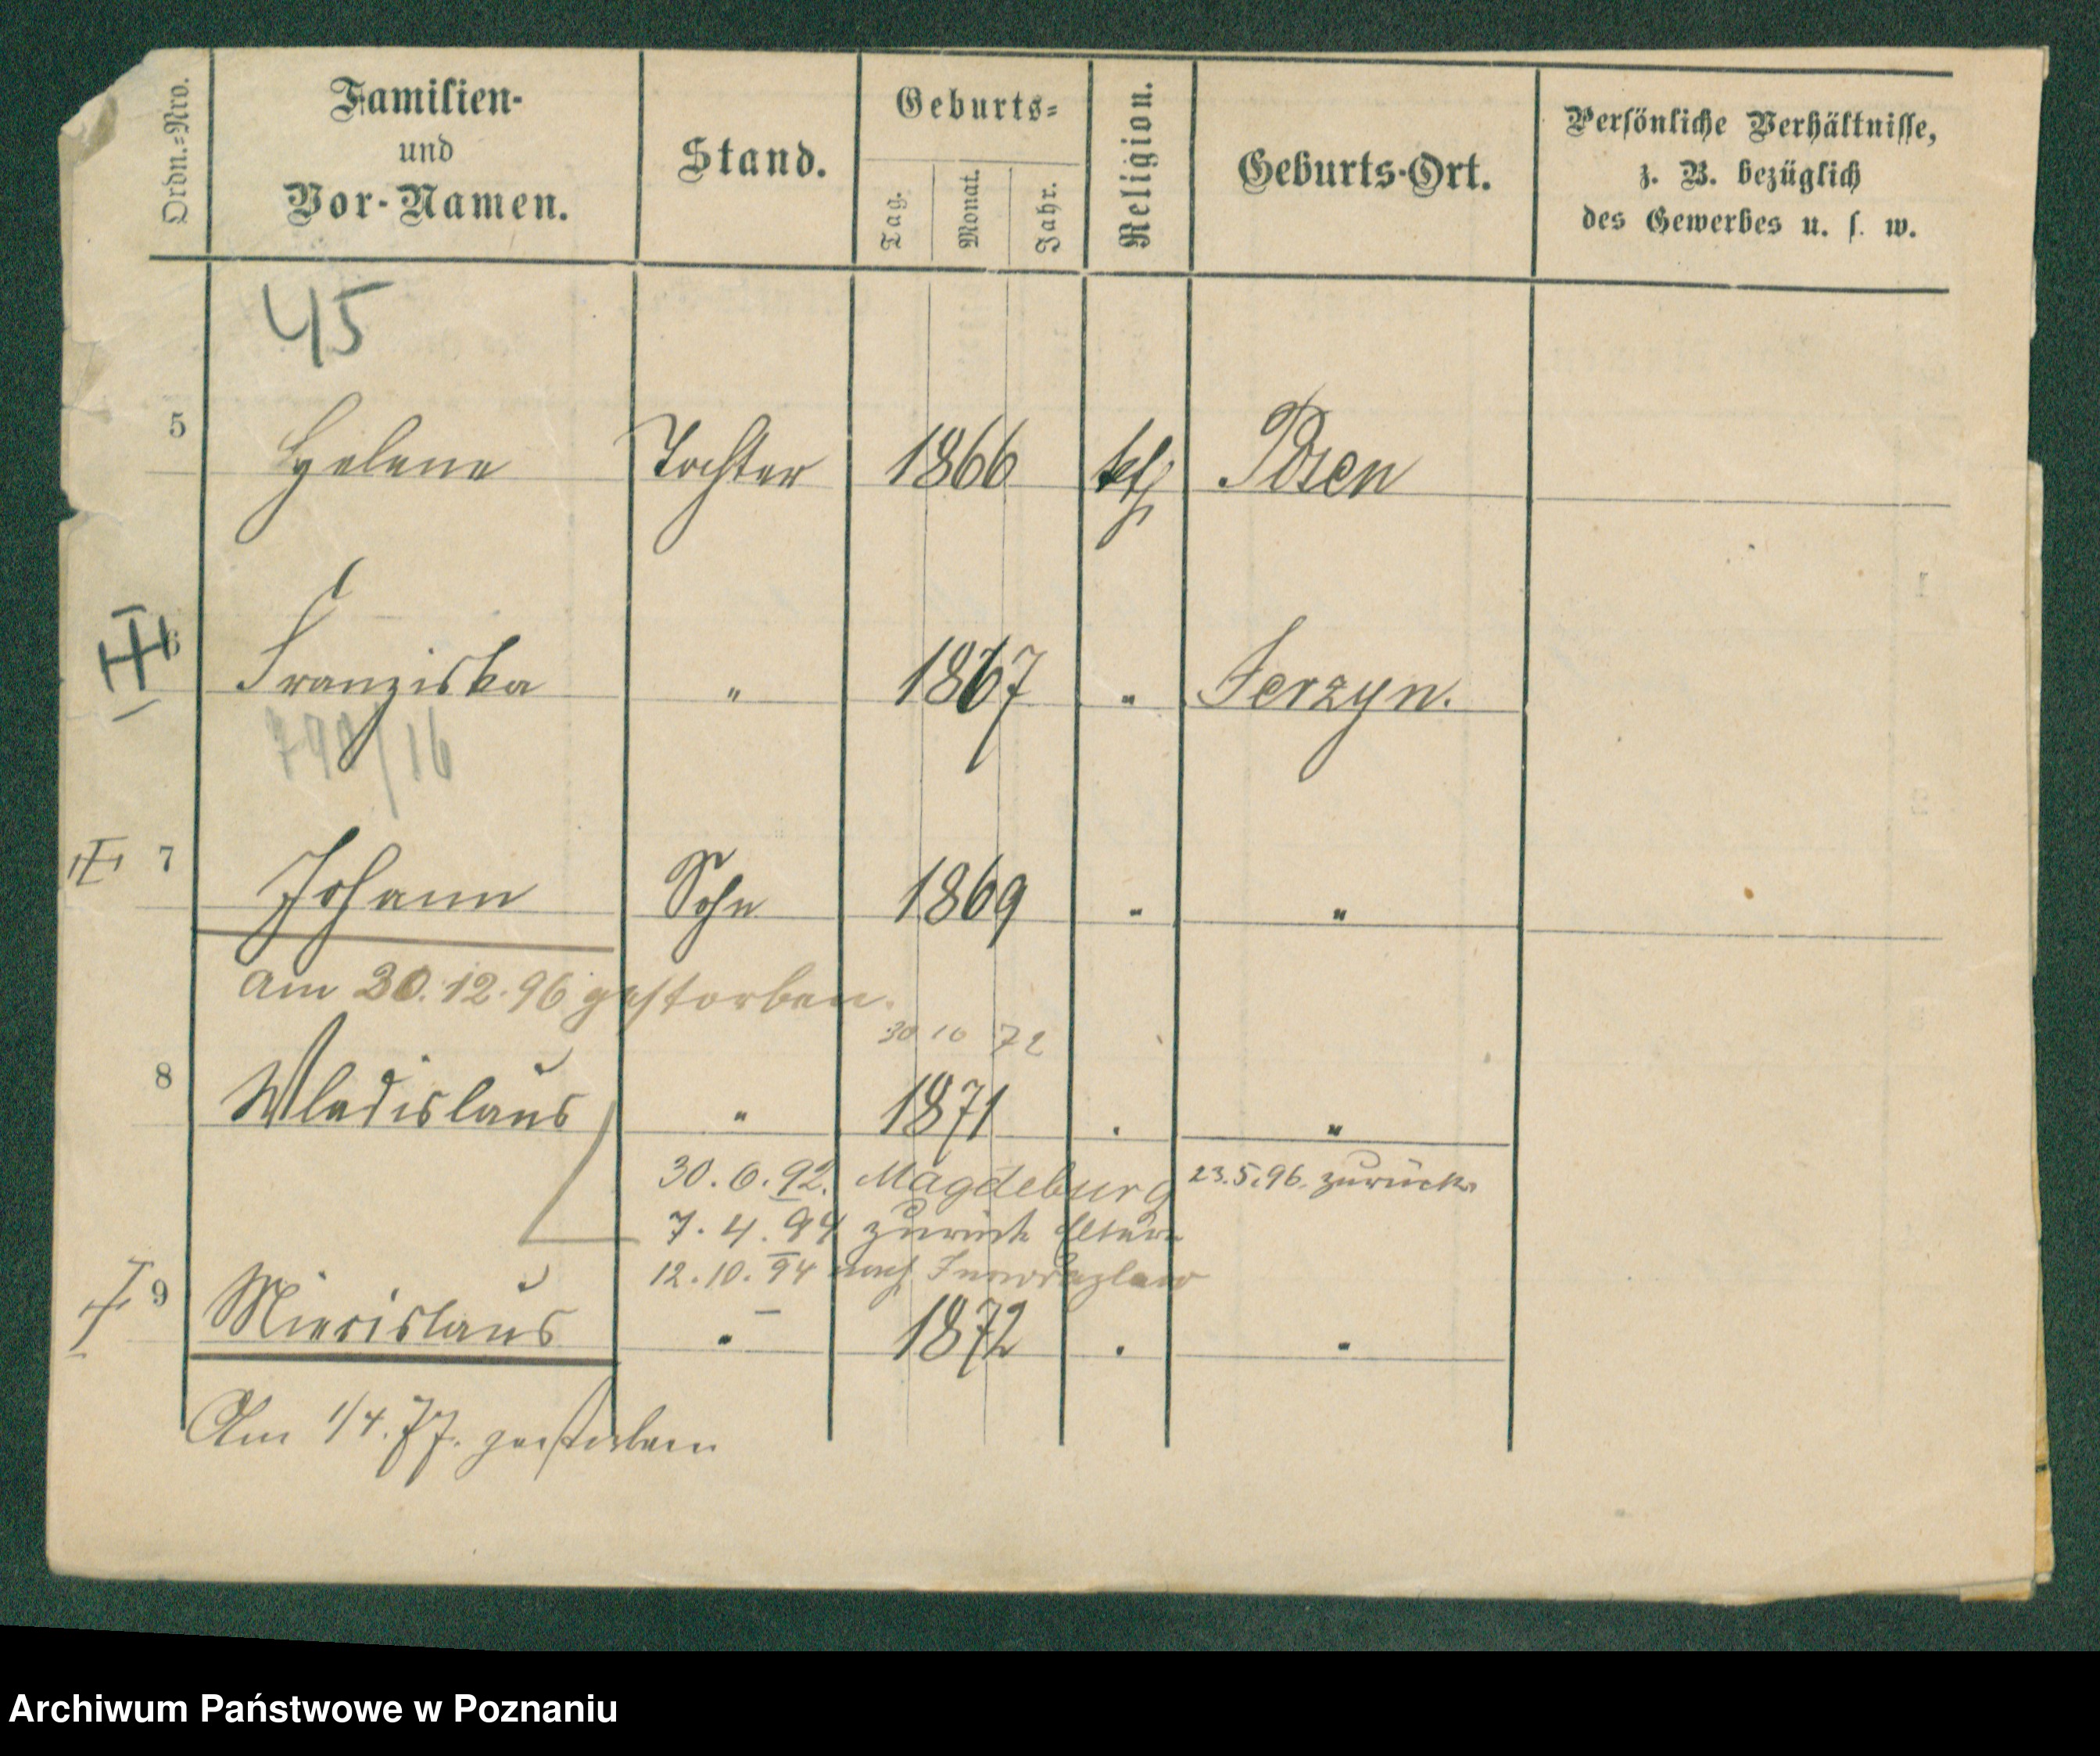 Ordn.-Nro.
Familien-
und
Vor-Namen.
Stand.
Geburts-
Tag.
Monat.
Jahr.
Religion.
Geburts-Ort.
Persönliche Verhältnisse,
z. B. bezüglich
des Gewerbes u. s. w.
45
5 Helene Tochter 1866 kth Posen
6 Franziska " 1867 " Jerzyn.
/16
7 Johann Sohn 1869 " "
Am 30.12.96 gestorben.
30 10 72
8 Wladislaus " 1871 " "
30.6.92. Magdeburg 23.5.96. zurück
7.4.94 zurück Eltern
12.10.94 nach Inowrazlaw
9 Miecislaus " 1872 " "
Am 1/4.77. gestorben
Archiwum Państwowe w Poznaniu